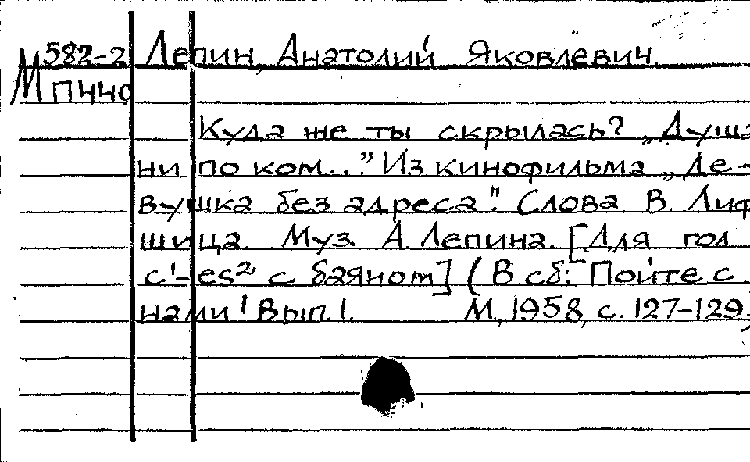 М 582-2 Лепин, Анатолий Яковлевич.
П440
Куда же ты скрылась? „Душа
ни по ком..." Из кинофильма „Де-
вушка без адреса". Слова В. Лиф
шица. Муз. А. Лепина. [Для гол.
c¹-es² с баяном] (В сб: Пойте с
нами! Вып. 1. М, 1958, с. 127-129.